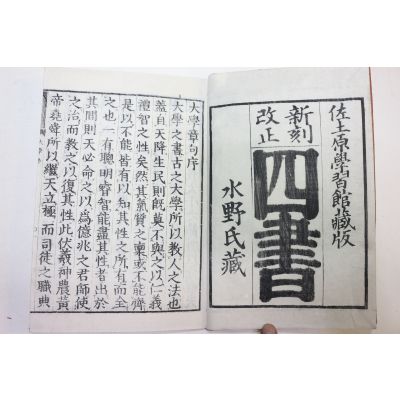 佐土原學習館藏版
新刻
改正
四書
水野氏藏
大學章句序
大學之書古之大學所以教人之法也
蓋自天降生民則既莫不與之以仁義
禮智之性矣然其氣質之稟或不能齊
是以不能皆有以知其性之所有而全
之也一有聰明睿智能盡其性者出於
其閒則天必命之以爲億兆之君師使
之治而教之以復其性此伏羲神農黃
帝堯舜所以繼天立極而司徒之職典